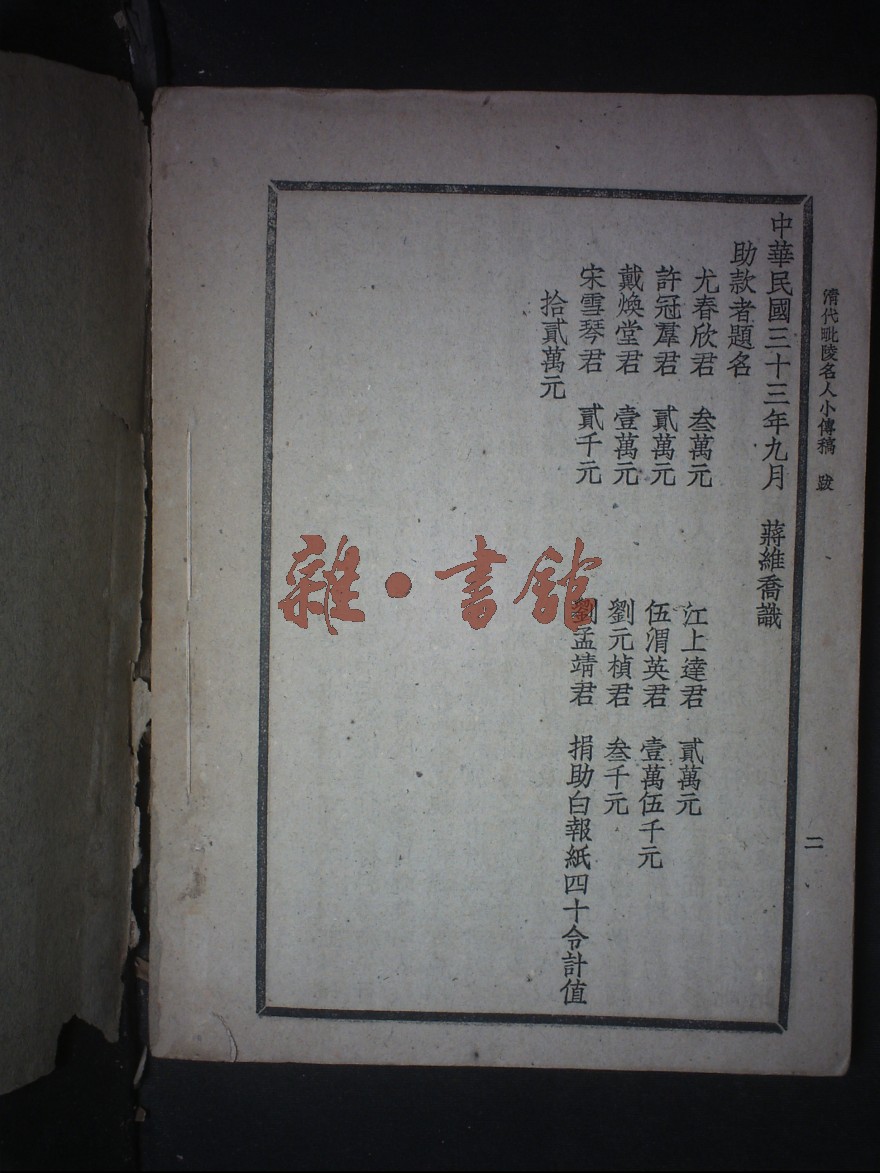 清代毗陵名人小傳稿　跋
二
中華民國三十三年九月　蔣維喬識
助款者題名
尤春欣君　叁萬元　江上達君　貳萬元
許冠羣君　貳萬元　伍渭英君　壹萬伍千元
戴煥堂君　壹萬元　劉元楨君　叁千元
宋雪琴君　貳千元　劉孟靖君　捐助白報紙四十令計值
拾貳萬元
雜·書館